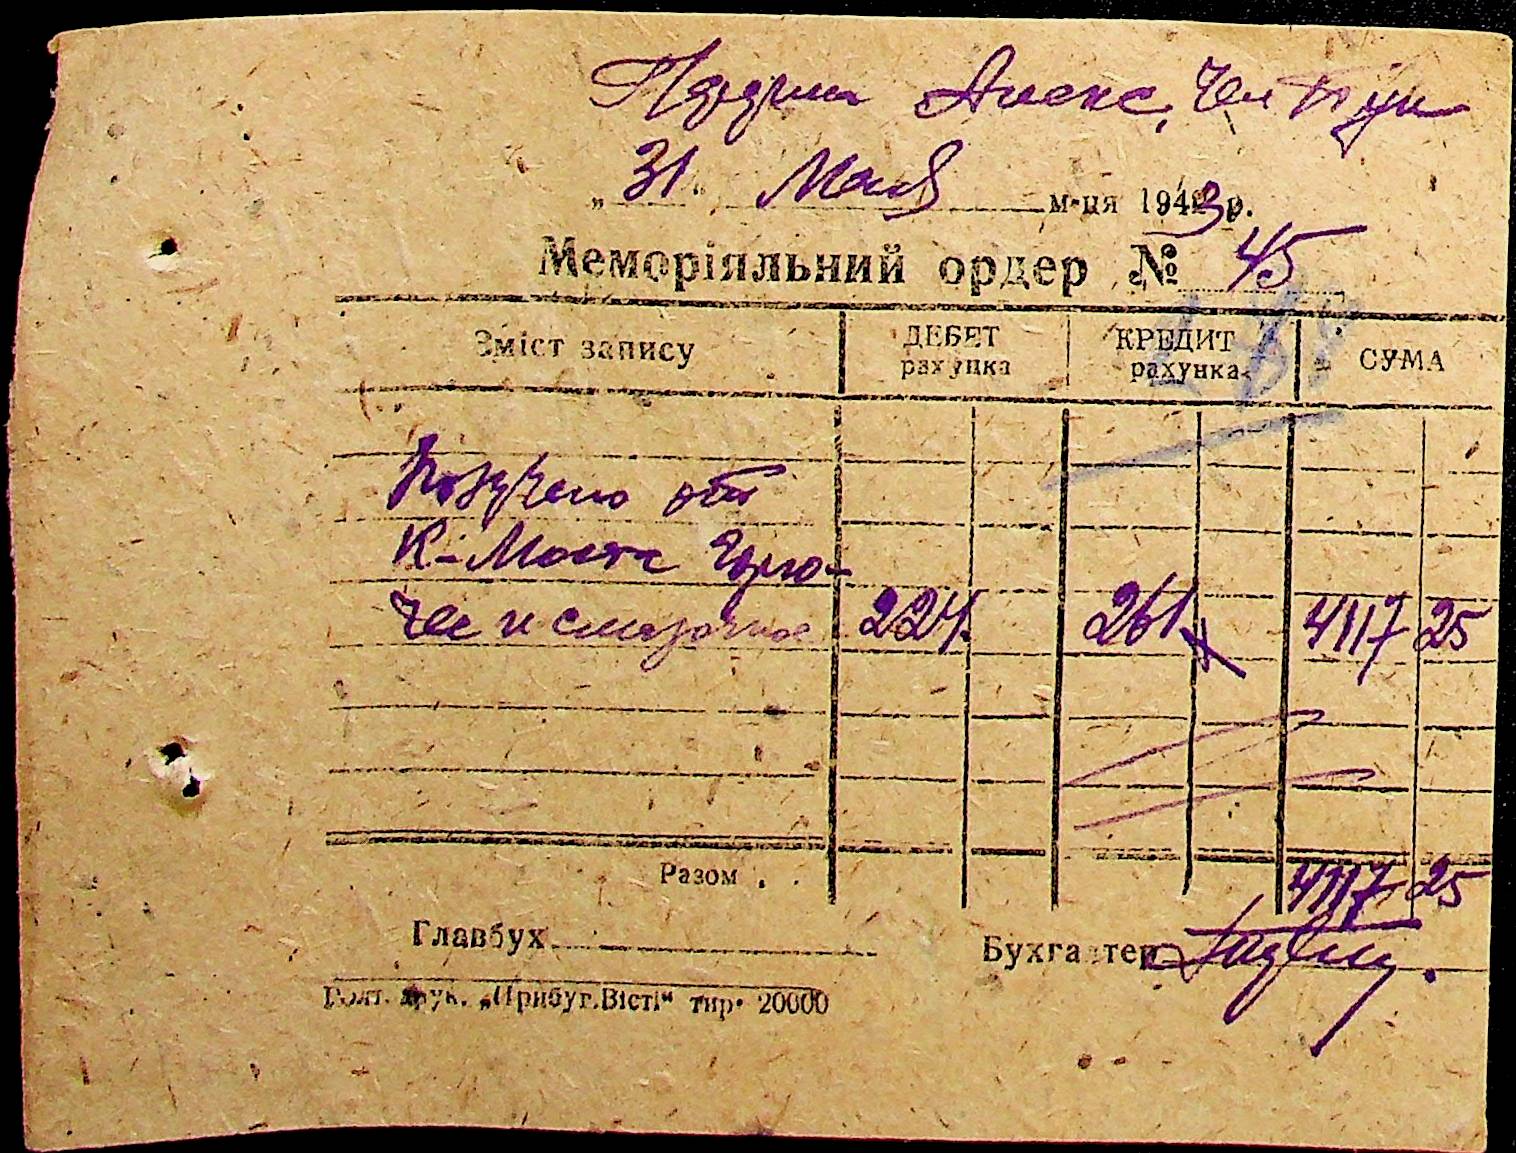 Алекс.
"31" Мая м-ця 1943 р.
Меморіяльний ордер № 45
Зміст запису ДЕБЕТ рахунка КРЕДИТ рахунка СУМА
Получено от
К-Моста Горю-
чее и смазочное 224. 261 4117 25
Разом . . 4117 25
Главбух Бухгалтер
друк. „Прибуг.Вісті“ тир. 20000